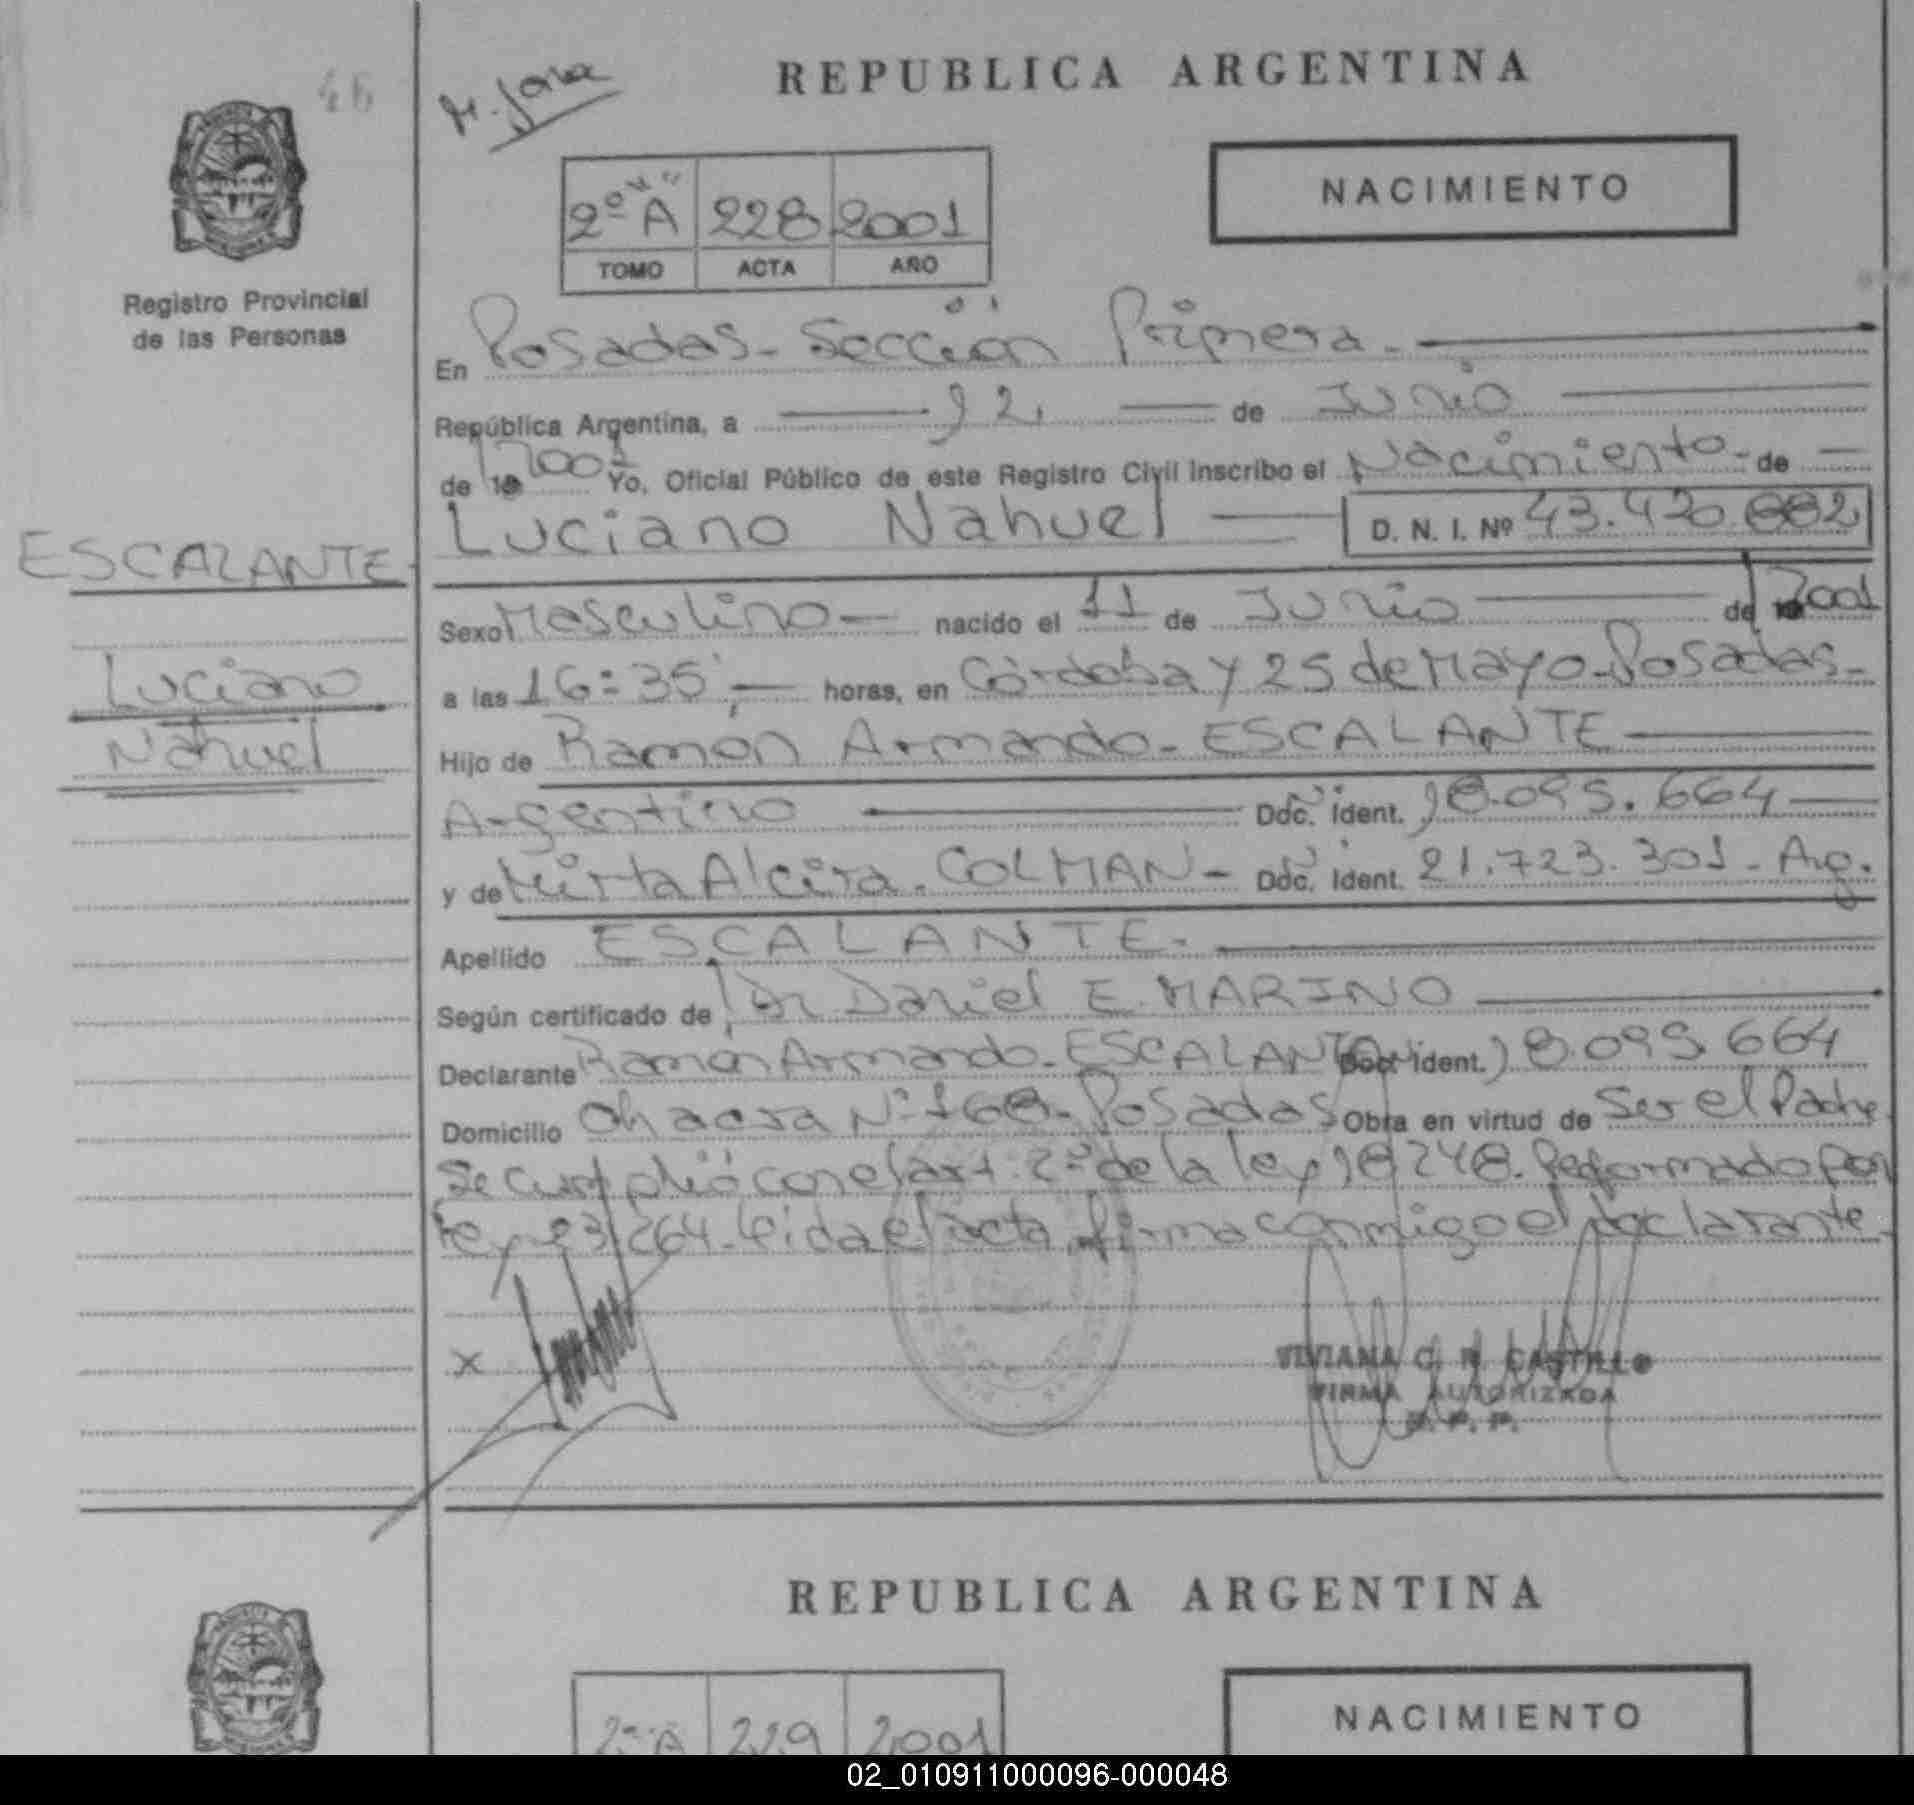 46
M. Java
REPUBLICA ARGENTINA
NACIMIENTO
2º A 228 2001
TOMO ACTA AÑO
Registro Provincial
de las Personas
En Posadas - Sección Primera.-
República Argentina, a 12, de Junio
de 19 2001 Yo, Oficial Público de este Registro Civil inscribo el Nacimiento - de
Luciano Nahuel D. N. I. Nº 43.420.882
ESCALANTE
Sexo Masculino nacido el 11 de Junio de 19 2001
Luciano
a las 16:35 horas, en Córdoba y 25 de Mayo - Posadas -
Nahuel
Hijo de Ramón Armando - ESCALANTE
Argentino Doc. Ident. 18.095.664
y de Mirta Alcira. COLMAN - Doc. Ident. 21.723.301 - Arg.
Apellido ESCALANTE.
Según certificado de Dr Daniel E. MARINO
Declarante Ramón Armando - ESCALANTE Doc. Ident. 18.095.664
Domicilio Chacra Nº 168 - Posadas Obra en virtud de ser el Padre
Se cumplió con el art. 2º de la ley 18248. Reformado por
ley 23.264. Leida el acta, firma conmigo el declarante
X
VIVIANA C. R. CASTILLO
FIRMA AUTORIZADA
R. P. P.
REPUBLICA ARGENTINA
NACIMIENTO
2º A 229 2001
02_010911000096-000048